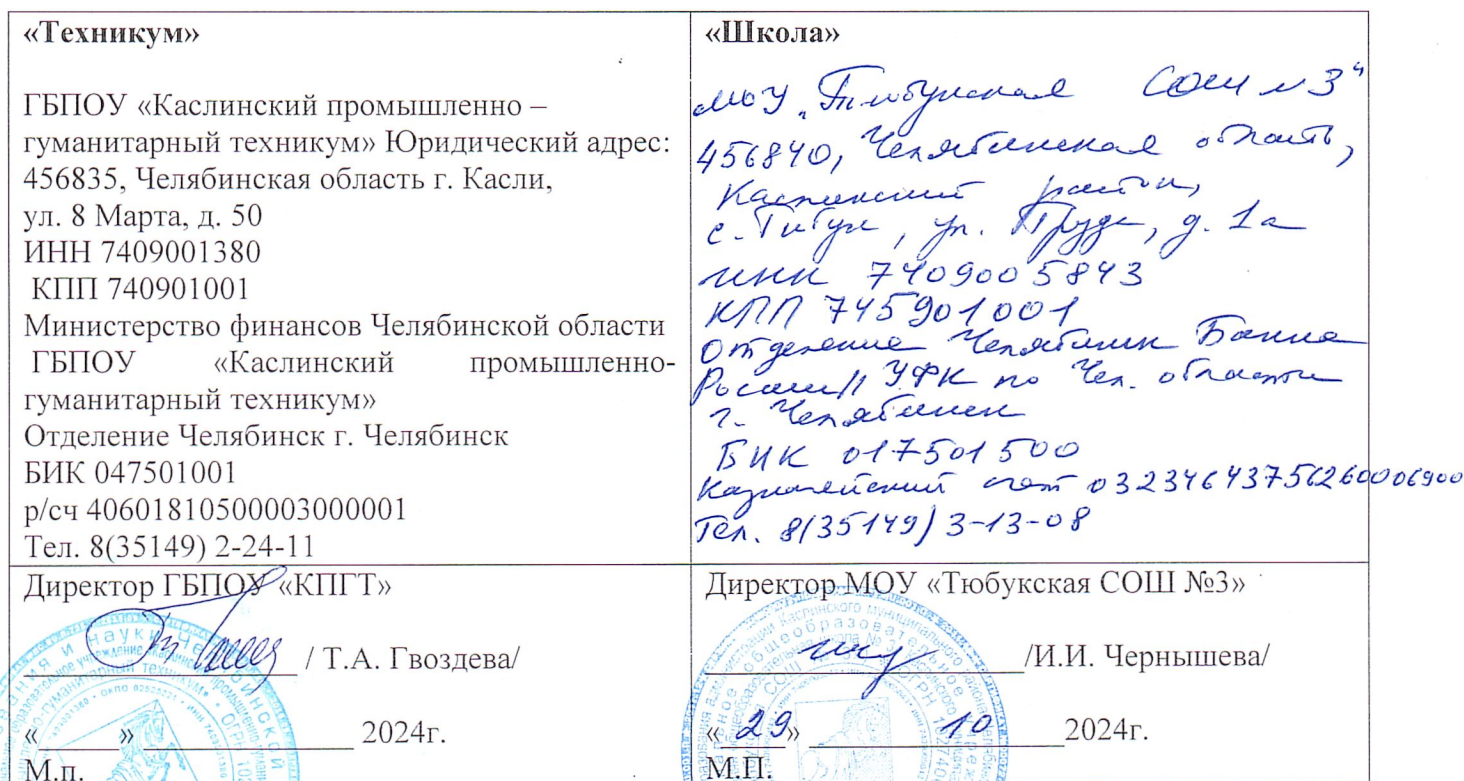 «Техникум»
ГБПОУ «Каслинский промышленно –
гуманитарный техникум» Юридический адрес:
456835, Челябинская область г. Касли,
ул. 8 Марта, д. 50
ИНН 7409001380
КПП 740901001
Министерство финансов Челябинской области
ГБПОУ «Каслинский промышленно-
гуманитарный техникум»
Отделение Челябинск г. Челябинск
БИК 047501001
р/сч 40601810500003000001
Тел. 8(35149) 2-24-11
Директор ГБПОУ «КПГТ»
/ Т.А. Гвоздева/
«_____» ______________ 2024г.
М.п.
«Школа»
МОУ "Тюбукская СОШ №3"
456840, Челябинская область,
Каслинский район,
с. Тюбук, ул. Труда, д. 1а
ИНН 7409005843
КПП 745901001
Отделение Челябинск Банка
России// УФК по Чел. области
г. Челябинск
БИК 017501500
Казначейский счет 03234643756260006900
Тел. 8(35149) 3-13-08
Директор МОУ «Тюбукская СОШ №3»
/И.И. Чернышева/
«29» 10 2024г.
М.П.